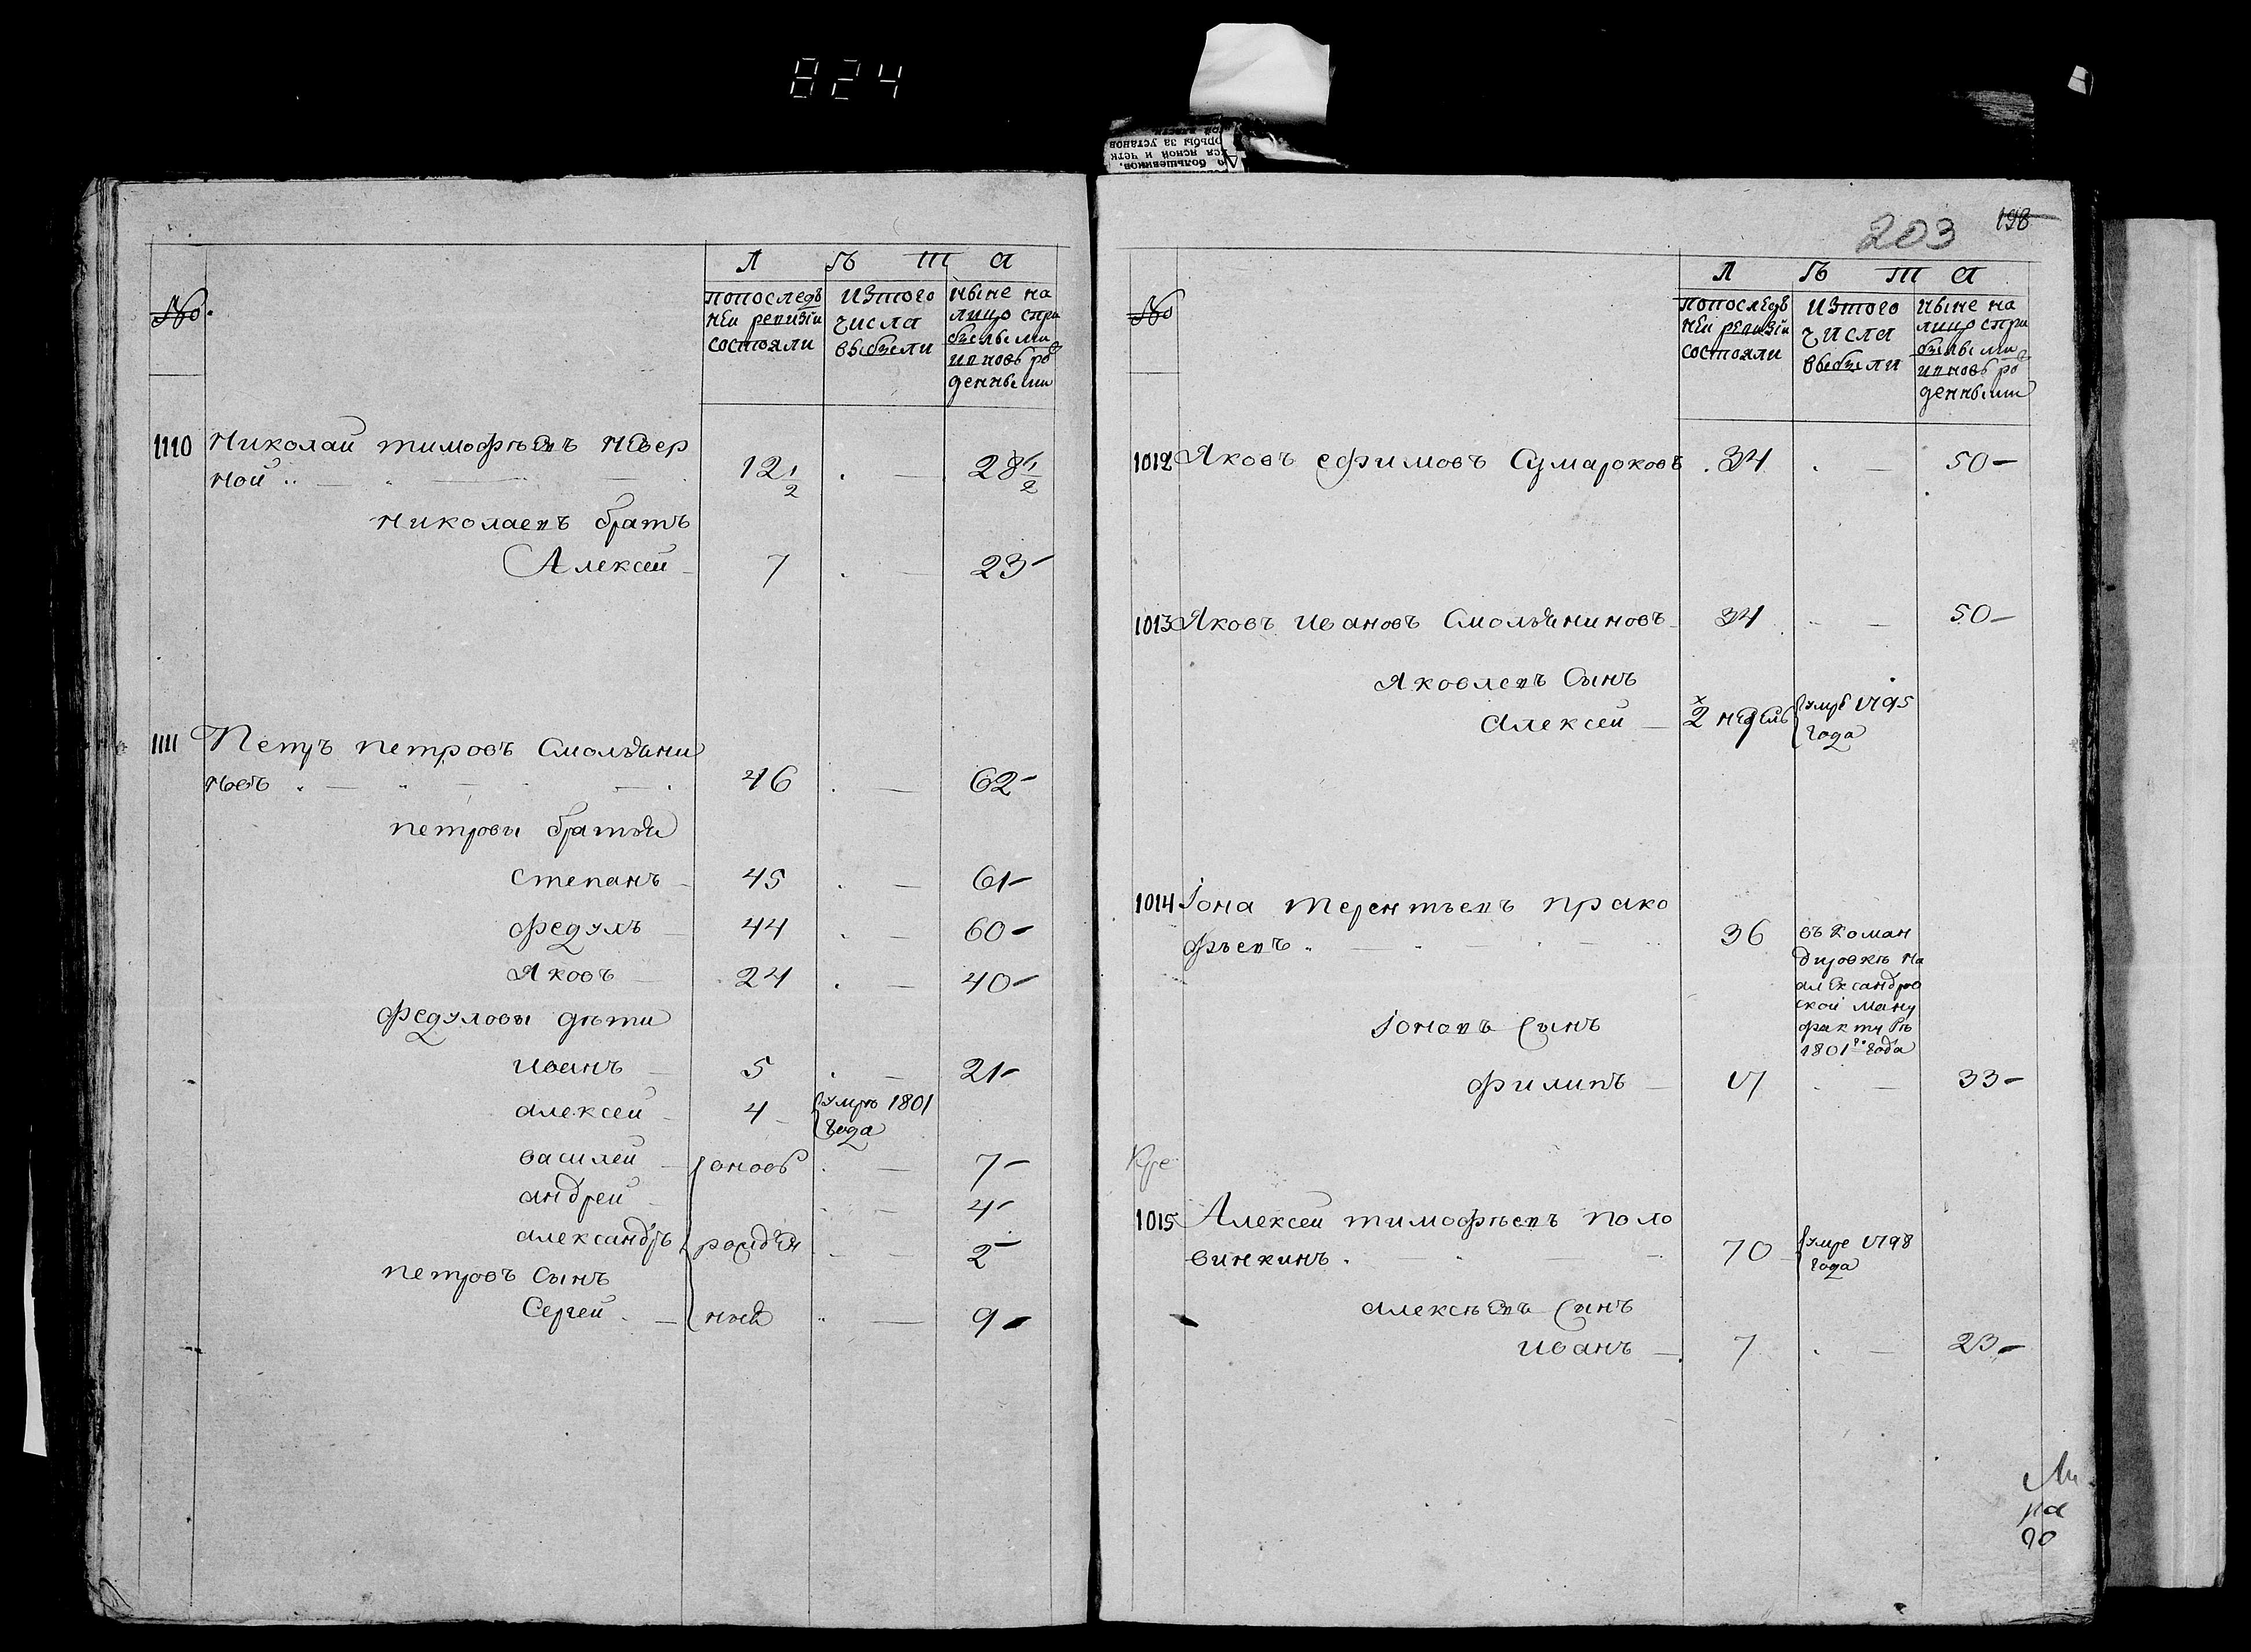 824
№
Л ѣ т а
попоследъ
ней ревизіи
состояли
изтого
числа
выбыли
ныне на
лицо спри
былыми
ивновь ро
денными
1110 Николай тимофѣевъ невер
ной 12 1/2 28 1/2
николаевъ братъ
Алексей 7 23
1111 Петръ петровъ Смольяни
новъ 46 62
петровы братья
степанъ 45 61
федулъ 44 60
Яковъ 24 40
федуловы дѣти
иванъ 5 21
алексей 4 умре 1801
года
василей вновь 7
андрей 4
александръ рожден 2
петровъ сынъ
Сергей ныя 9
203 198
№
Л ѣ т а
попоследъ
ней ревизіи
состояли
изтого
числа
выбыли
ныне на
лицо спри
былыми
ивновь ро
денными
1012 Яковъ ефимовъ Сумароковъ 34 50
1013 Яковъ ивановъ Смольяниновъ 34 50
яковлевъ Сынъ
алексей 2 недель умре 1795
года
1014 Іона терентьевъ прако
фьевъ 36 въ коман
дировкѣ на
александро
ской ману
фактурѣ
1801го года
Іонавъ сынъ
филипъ 17 33
1015 Алексей тимофѣевъ поло
винкинъ 70 умре 1798
года
алексѣевъ сынъ
иванъ 7 23